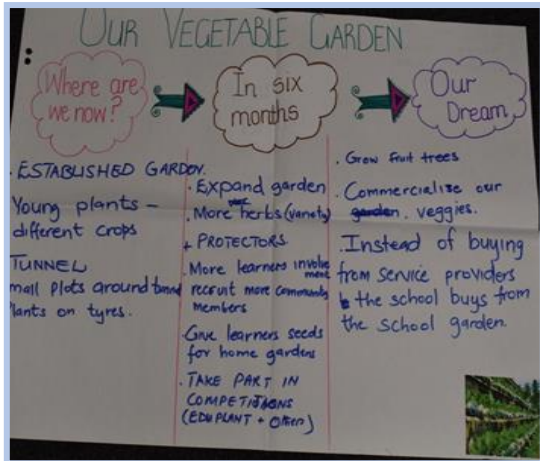 OUR VEGETABLE GARDEN
Where are
we now?
In six
months
Our
Dream
. ESTABLISHED GARDEN.
Young plants –
different crops
TUNNEL
mall plots around tunnel
lants on tyres.
. Expand garden
. More herbs (variety)
+ PROTECTORS
. More learners involve
ment
recruit more community
members
. Give learners seeds
for home gardens
. TAKE PART IN
COMPETITIONS
(EDUPLANT + Other)
. Grow fruit trees
. Commercialise our
garden. veggies.
. Instead of buying
from service providers
the school buys from
the school garden.